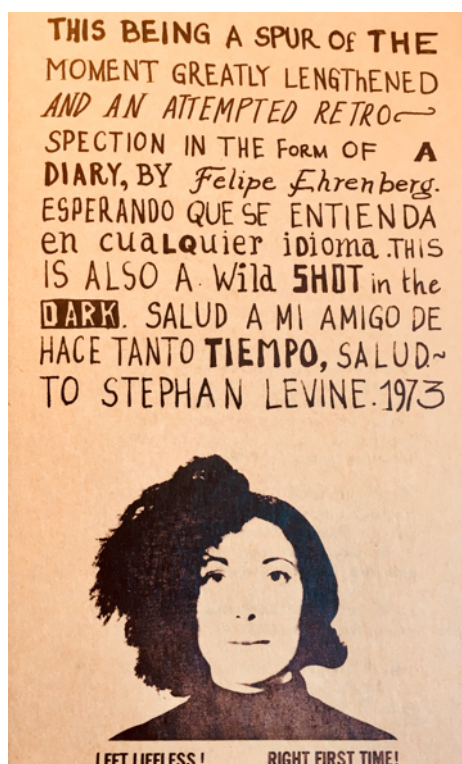 THIS BEING A SPUR Of THE
MOMENT GREATLY LENGThENED
AND AN ATTEMPTED RETRO-
SPECTION IN THE FORM OF A
DIARY, BY Felipe Ehrenberg.
ESPERANDO QUE SE ENTIENDA
en cuaLQuier iDioma. THIS
IS ALSO A Wild SHOT in the
DARK. SALUD A MI AMIGO DE
HACE TANTO TIEMPO, SALUD~
TO STEPHAN LEVINE. 1973
LEFT LIFELESS! RIGHT FIRST TIME!